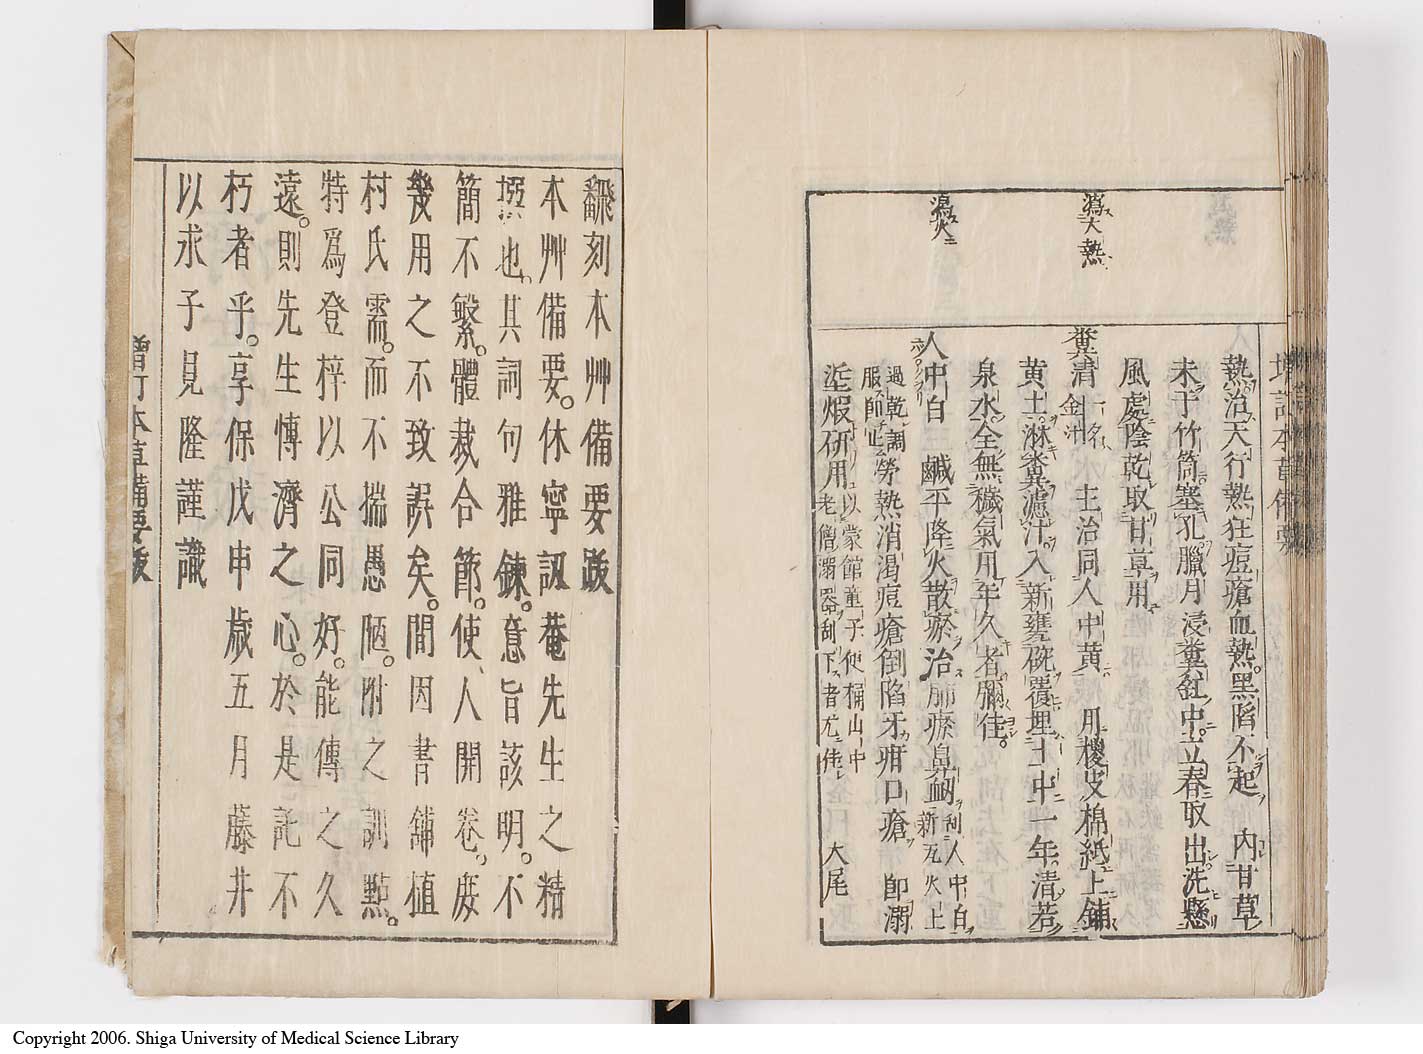 瀉大熱
瀉火
增訂本草備要
熱治天行熱狂痘瘡血熱黑陷不起　內甘草
末于竹筒塞孔臘月浸糞缸中立春取出洗懸
風處陰乾取甘草用
糞清一名金汁　主治同人中黃　用椶皮棉紙上鋪
黃土淋糞濾汁入新甕碗覆埋土中一年清若
泉水全無穢氣用年久者彌佳
人中白　鹹平降火散瘀治肺瘀鼻衂刮人中白新瓦火上
過乾調服即止勞熱消渴痘瘡倒陷牙疳口瘡　即溺
垽煆研用以蒙館童子便桶山中老僧溺器刮下者尤佳　大尾
飜刻本艸備要跋
本艸備要。休寧訒菴先生之精
也。其詞句雅鍊。意旨該明。不
簡不繁。體裁合節。使人開卷。庶
幾用之不致誤矣。間因書鋪植
村氏需。而不揣愚陋。附之訓點。
特爲登梓以公同好。能傳之久
遠。則先生慱濟之心。於是託不
朽者乎。享保戊申歲五月藤井
以求子見隆謹識
增訂本草備要跋
Copyright 2006. Shiga University of Medical Science Library